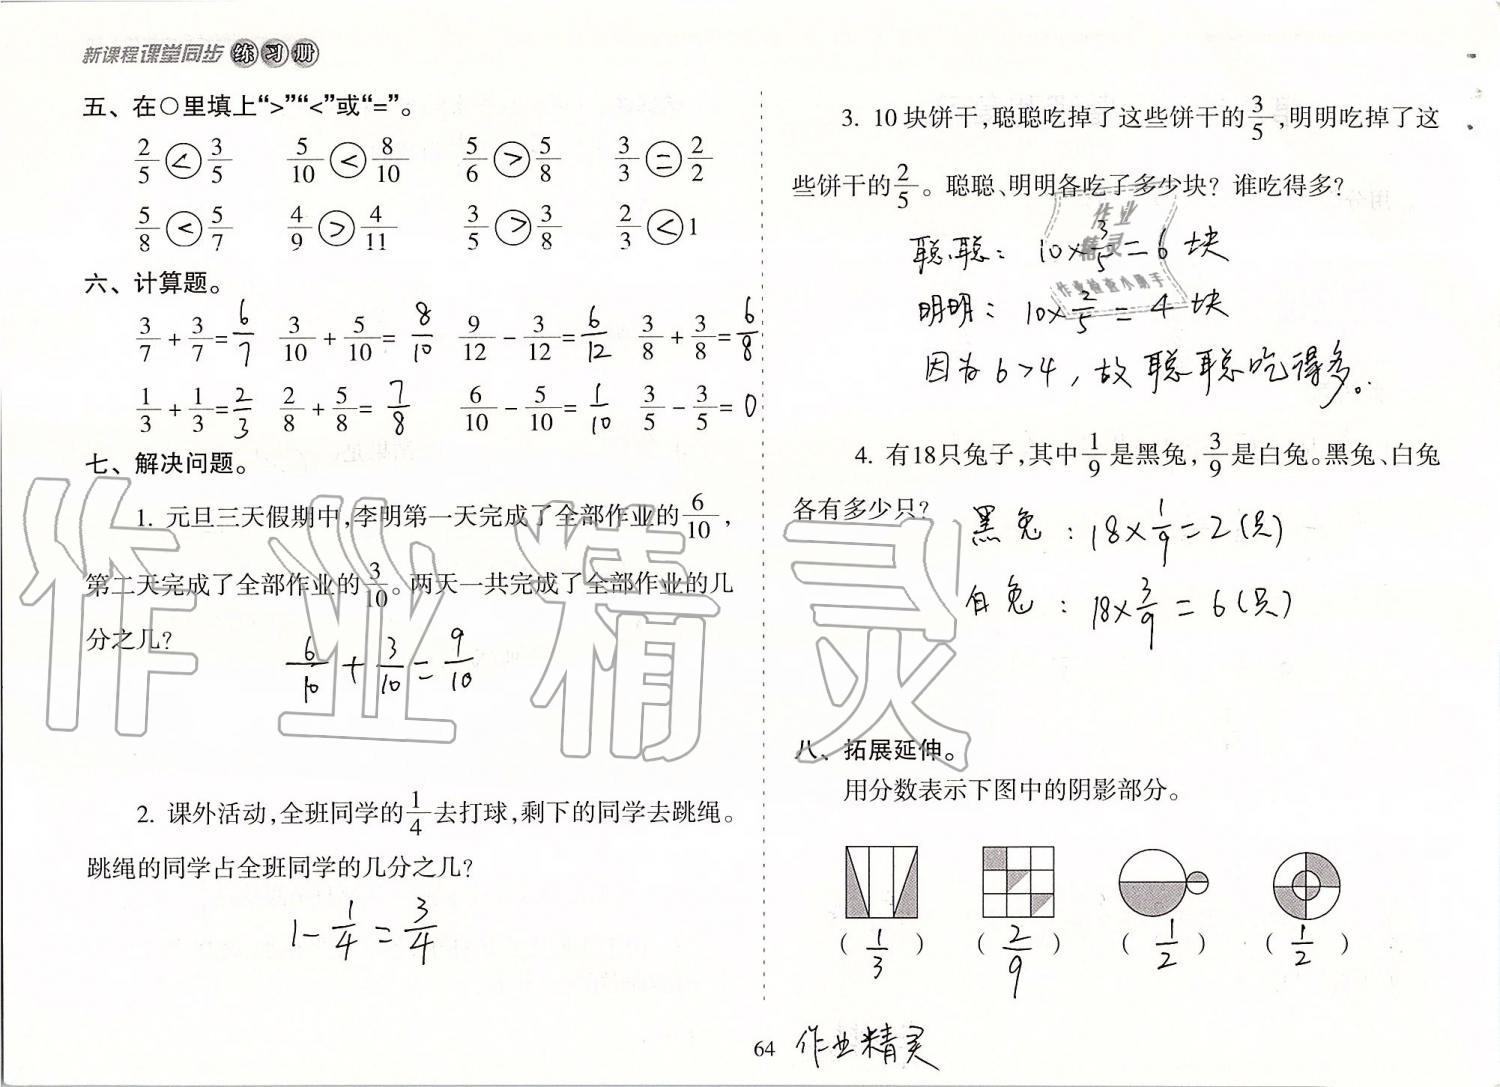 新课程课堂同步练习册
五、在○里填上“>”“<”或“=”。
2/5 < 3/5  5/10 < 8/10  5/6 > 5/8  3/3 = 2/2
5/8 < 5/7  4/9 > 4/11  3/5 > 3/8  2/3 < 1
六、计算题。
3/7 + 3/7 = 6/7  3/10 + 5/10 = 8/10  9/12 - 3/12 = 6/12  3/8 + 3/8 = 6/8
1/3 + 1/3 = 2/3  2/8 + 5/8 = 7/8  6/10 - 5/10 = 1/10  3/5 - 3/5 = 0
七、解决问题。
1. 元旦三天假期中,李明第一天完成了全部作业的6/10,
第二天完成了全部作业的3/10。两天一共完成了全部作业的几
分之几?
6/10 + 3/10 = 9/10
2. 课外活动,全班同学的1/4去打球,剩下的同学去跳绳。
跳绳的同学占全班同学的几分之几?
1 - 1/4 = 3/4
3. 10块饼干,聪聪吃掉了这些饼干的3/5,明明吃掉了这
些饼干的2/5。聪聪、明明各吃了多少块? 谁吃得多?
聪聪: 10×3/5=6块
明明: 10×2/5=4块
因为6>4,故聪聪吃得多。
作业
精灵
作业检查小助手
4. 有18只兔子,其中1/9是黑兔,3/9是白兔。黑兔、白兔
各有多少只?
黑兔: 18×1/9=2(只)
白兔: 18×3/9=6(只)
八、拓展延伸。
用分数表示下图中的阴影部分。
( 1/3 )  ( 2/9 )  ( 1/2 )  ( 1/2 )
作业精灵
64 作业精灵